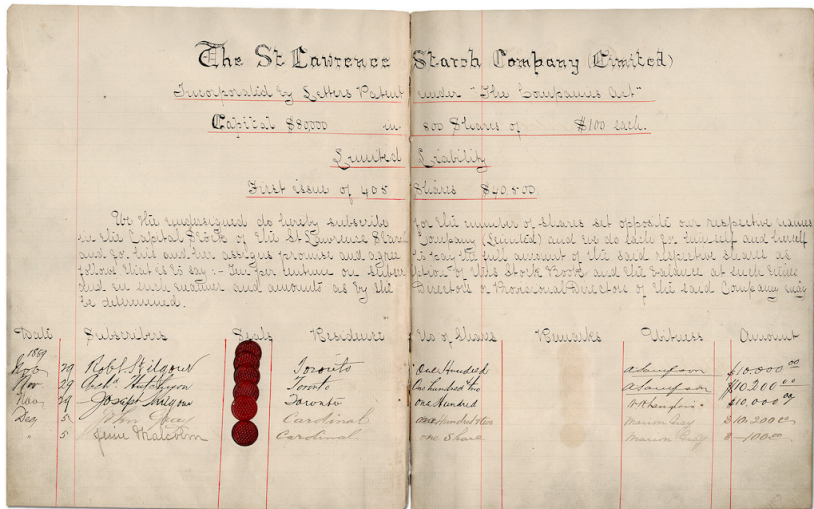 The St Lawrence Starch Company (Limited)
Incorporated by Letters Patent under "The Companies Act"
Capital $80000 in 800 Shares of $100 each.
Limited Liability
First issue of 405 Shares $40,500
We the undersigned do hereby subscribe for the number of shares set opposite our respective names
in the Capital Stock of the St Lawrence Starch Company (Limited) and we do each for himself and herself
and for his and her assigns promise and agree to pay the full amount of the said respective shares as
follows that is to say :- Ten per centum on subscription of this Stock Book and the balance at such times
and in such manner and amounts as by the Directors or Provisional Directors of the said Company may
be determined.
Date Subscribers Seals Residence No of Shares Remarks Witness Amount
1889
Nov 29 Robt Kilgour Toronto One Hundred $10,000 00
Nov. 29 Archd Hutchison Toronto One hundred two $10,200 00
Nov 29 Joseph Kilgour Toronto One Hundred $10,000 00
Dec 5 John Gray Cardinal one Hundred two Marion Gray $10,200 00
" 5 Malcolm Cardinal one Share Marion Gray $ 100 00